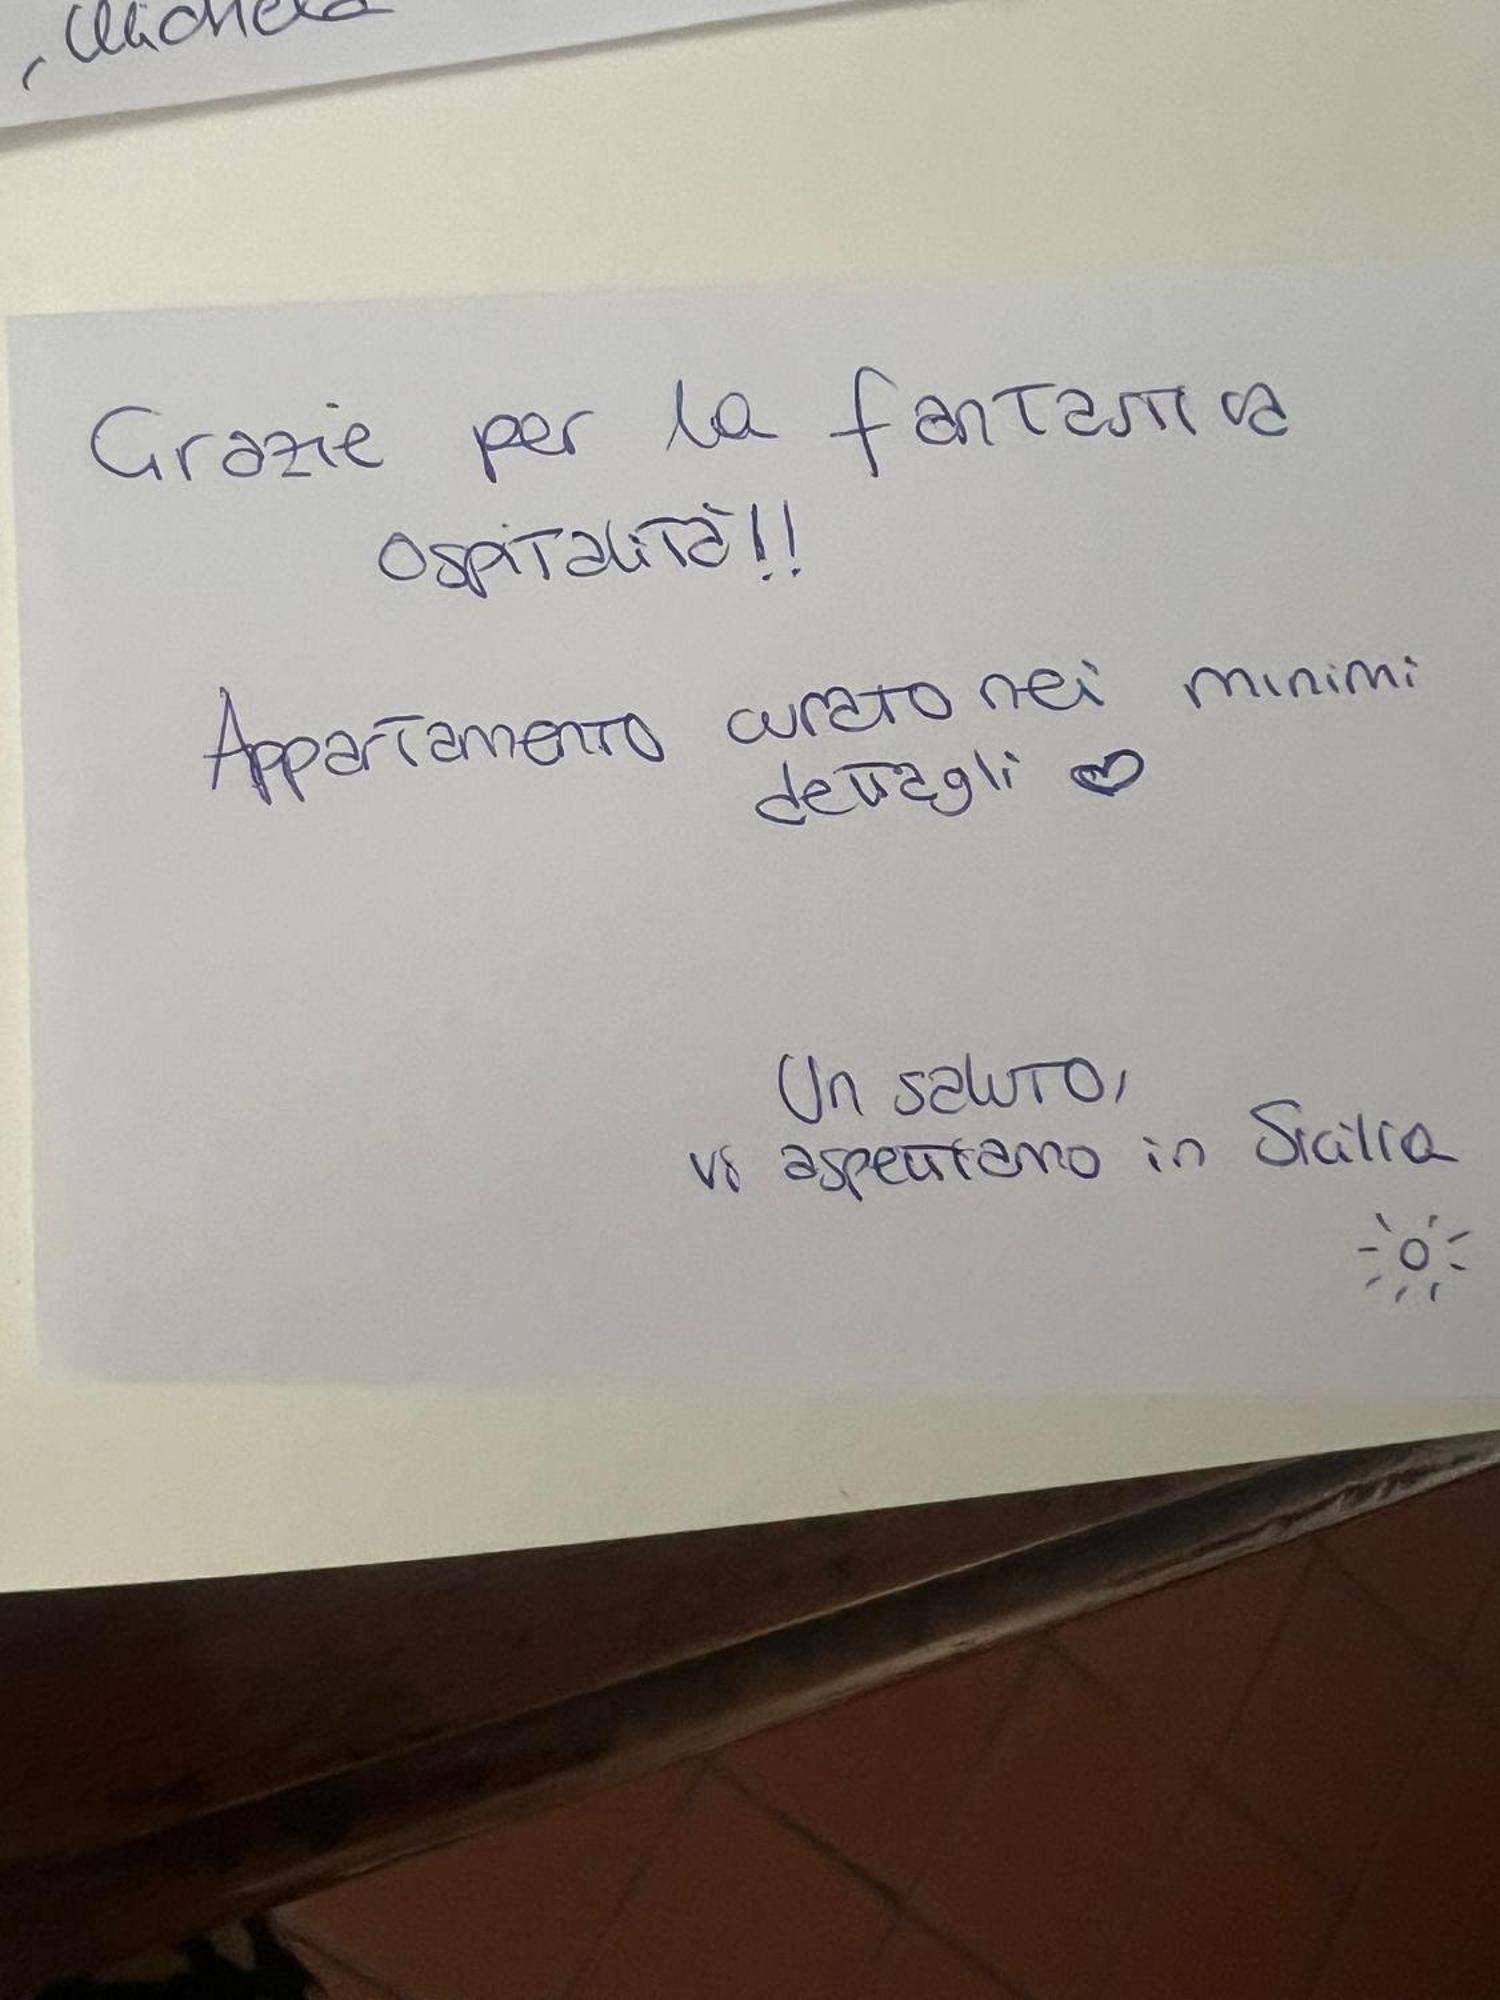 , Michela
Grazie per la fantastica
ospitalità!!
Appartamento curato nei minimi
dettagli ♡
Un saluto,
vi aspettiamo in Sicilia